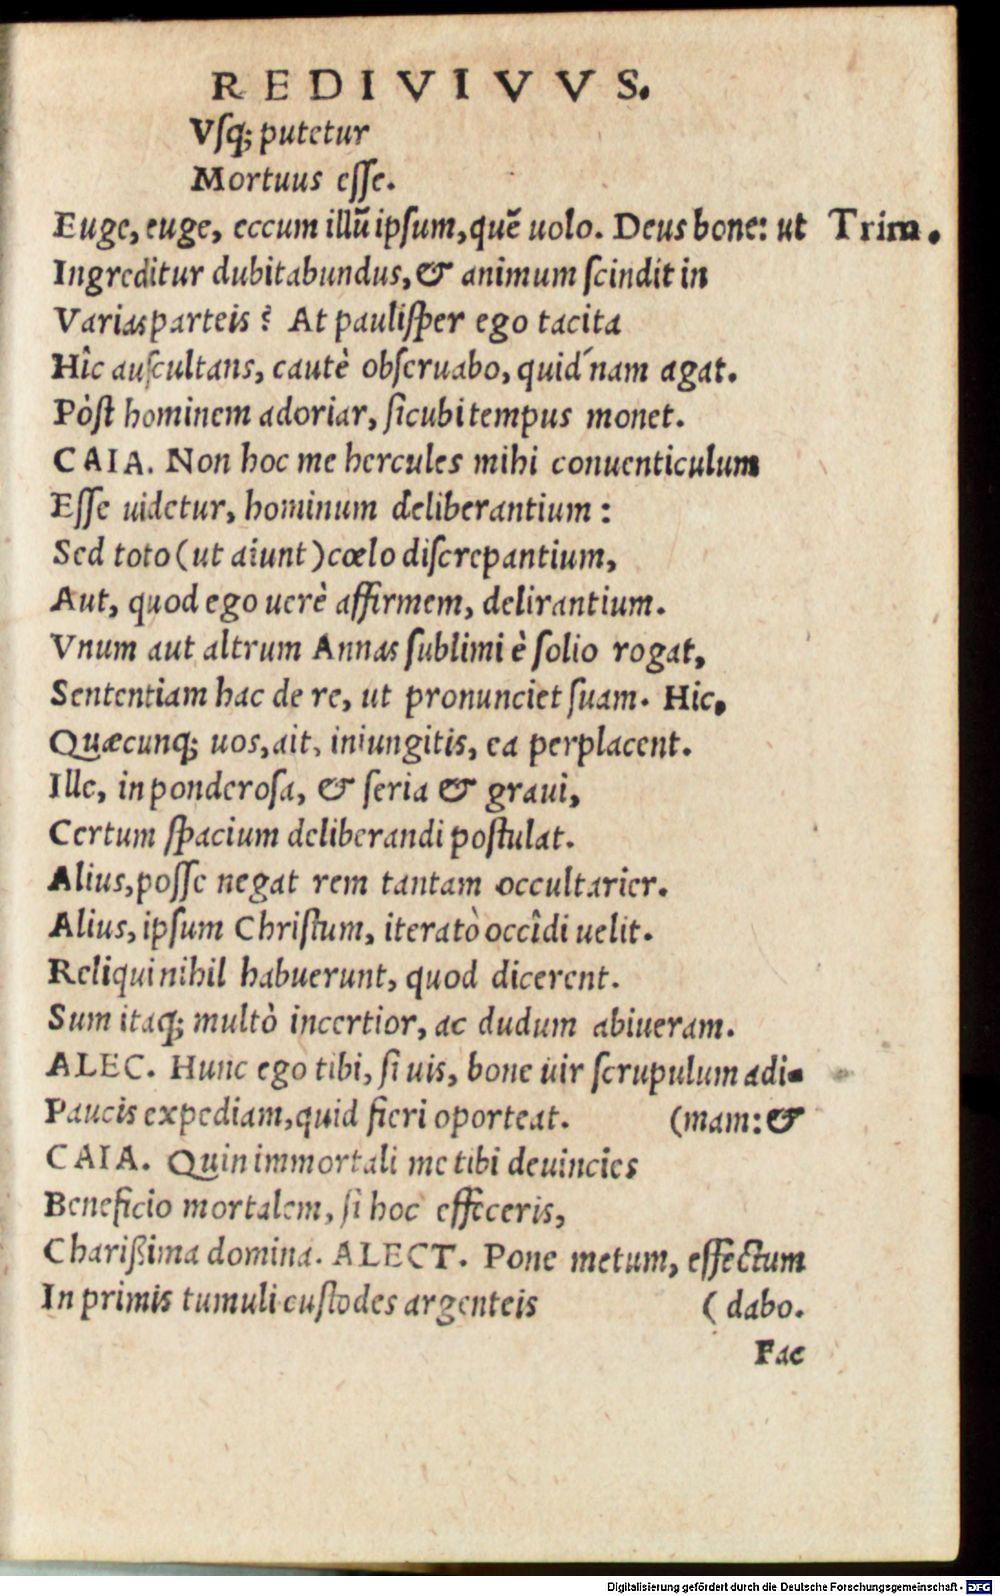 REDIVIVVS.
Vsq; putetur
Mortuus esse.
Euge, euge, eccum illū ipsum, quē uolo. Deus bone: ut Trim.
Ingreditur dubitabundus, & animum scindit in
Varias parteis? At paulisper ego tacita
Hîc auscultans, cautè obseruabo, quid´nam agat.
Pòst hominem adoriar, sicubi tempus monet.
CAIA. Non hoc me hercules mihi conuenticulum
Esse uidetur, hominum deliberantium:
Sed toto (ut aiunt) cœlo discrepantium,
Aut, quod ego uerè affirmem, delirantium.
Vnum aut altrum Annas sublimi è solio rogat,
Sententiam hac de re, ut pronunciet suam. Hic,
Quæcunq; uos, ait, iniungitis, ea perplacent.
Ille, in ponderosa, & seria & graui,
Certum spacium deliberandi postulat.
Alius, posse negat rem tantam occultarier.
Alius, ipsum Christum, iteratò occîdi uelit.
Reliqui nihil habuerunt, quod dicerent.
Sum itaq; multò incertior, ac dudum abiueram.
ALEC. Hunc ego tibi, si uis, bone uir scrupulum adi-
Paucis expediam, quid fieri oporteat. (mam: &
CAIA. Quin immortali me tibi deuincies
Beneficio mortalem, si hoc effeceris,
Charißima domina. ALECT. Pone metum, effectum
In primis tumuli custodes argenteis (dabo.
Fac
Digitalisierung gefördert durch die Deutsche Forschungsgemeinschaft - DFG